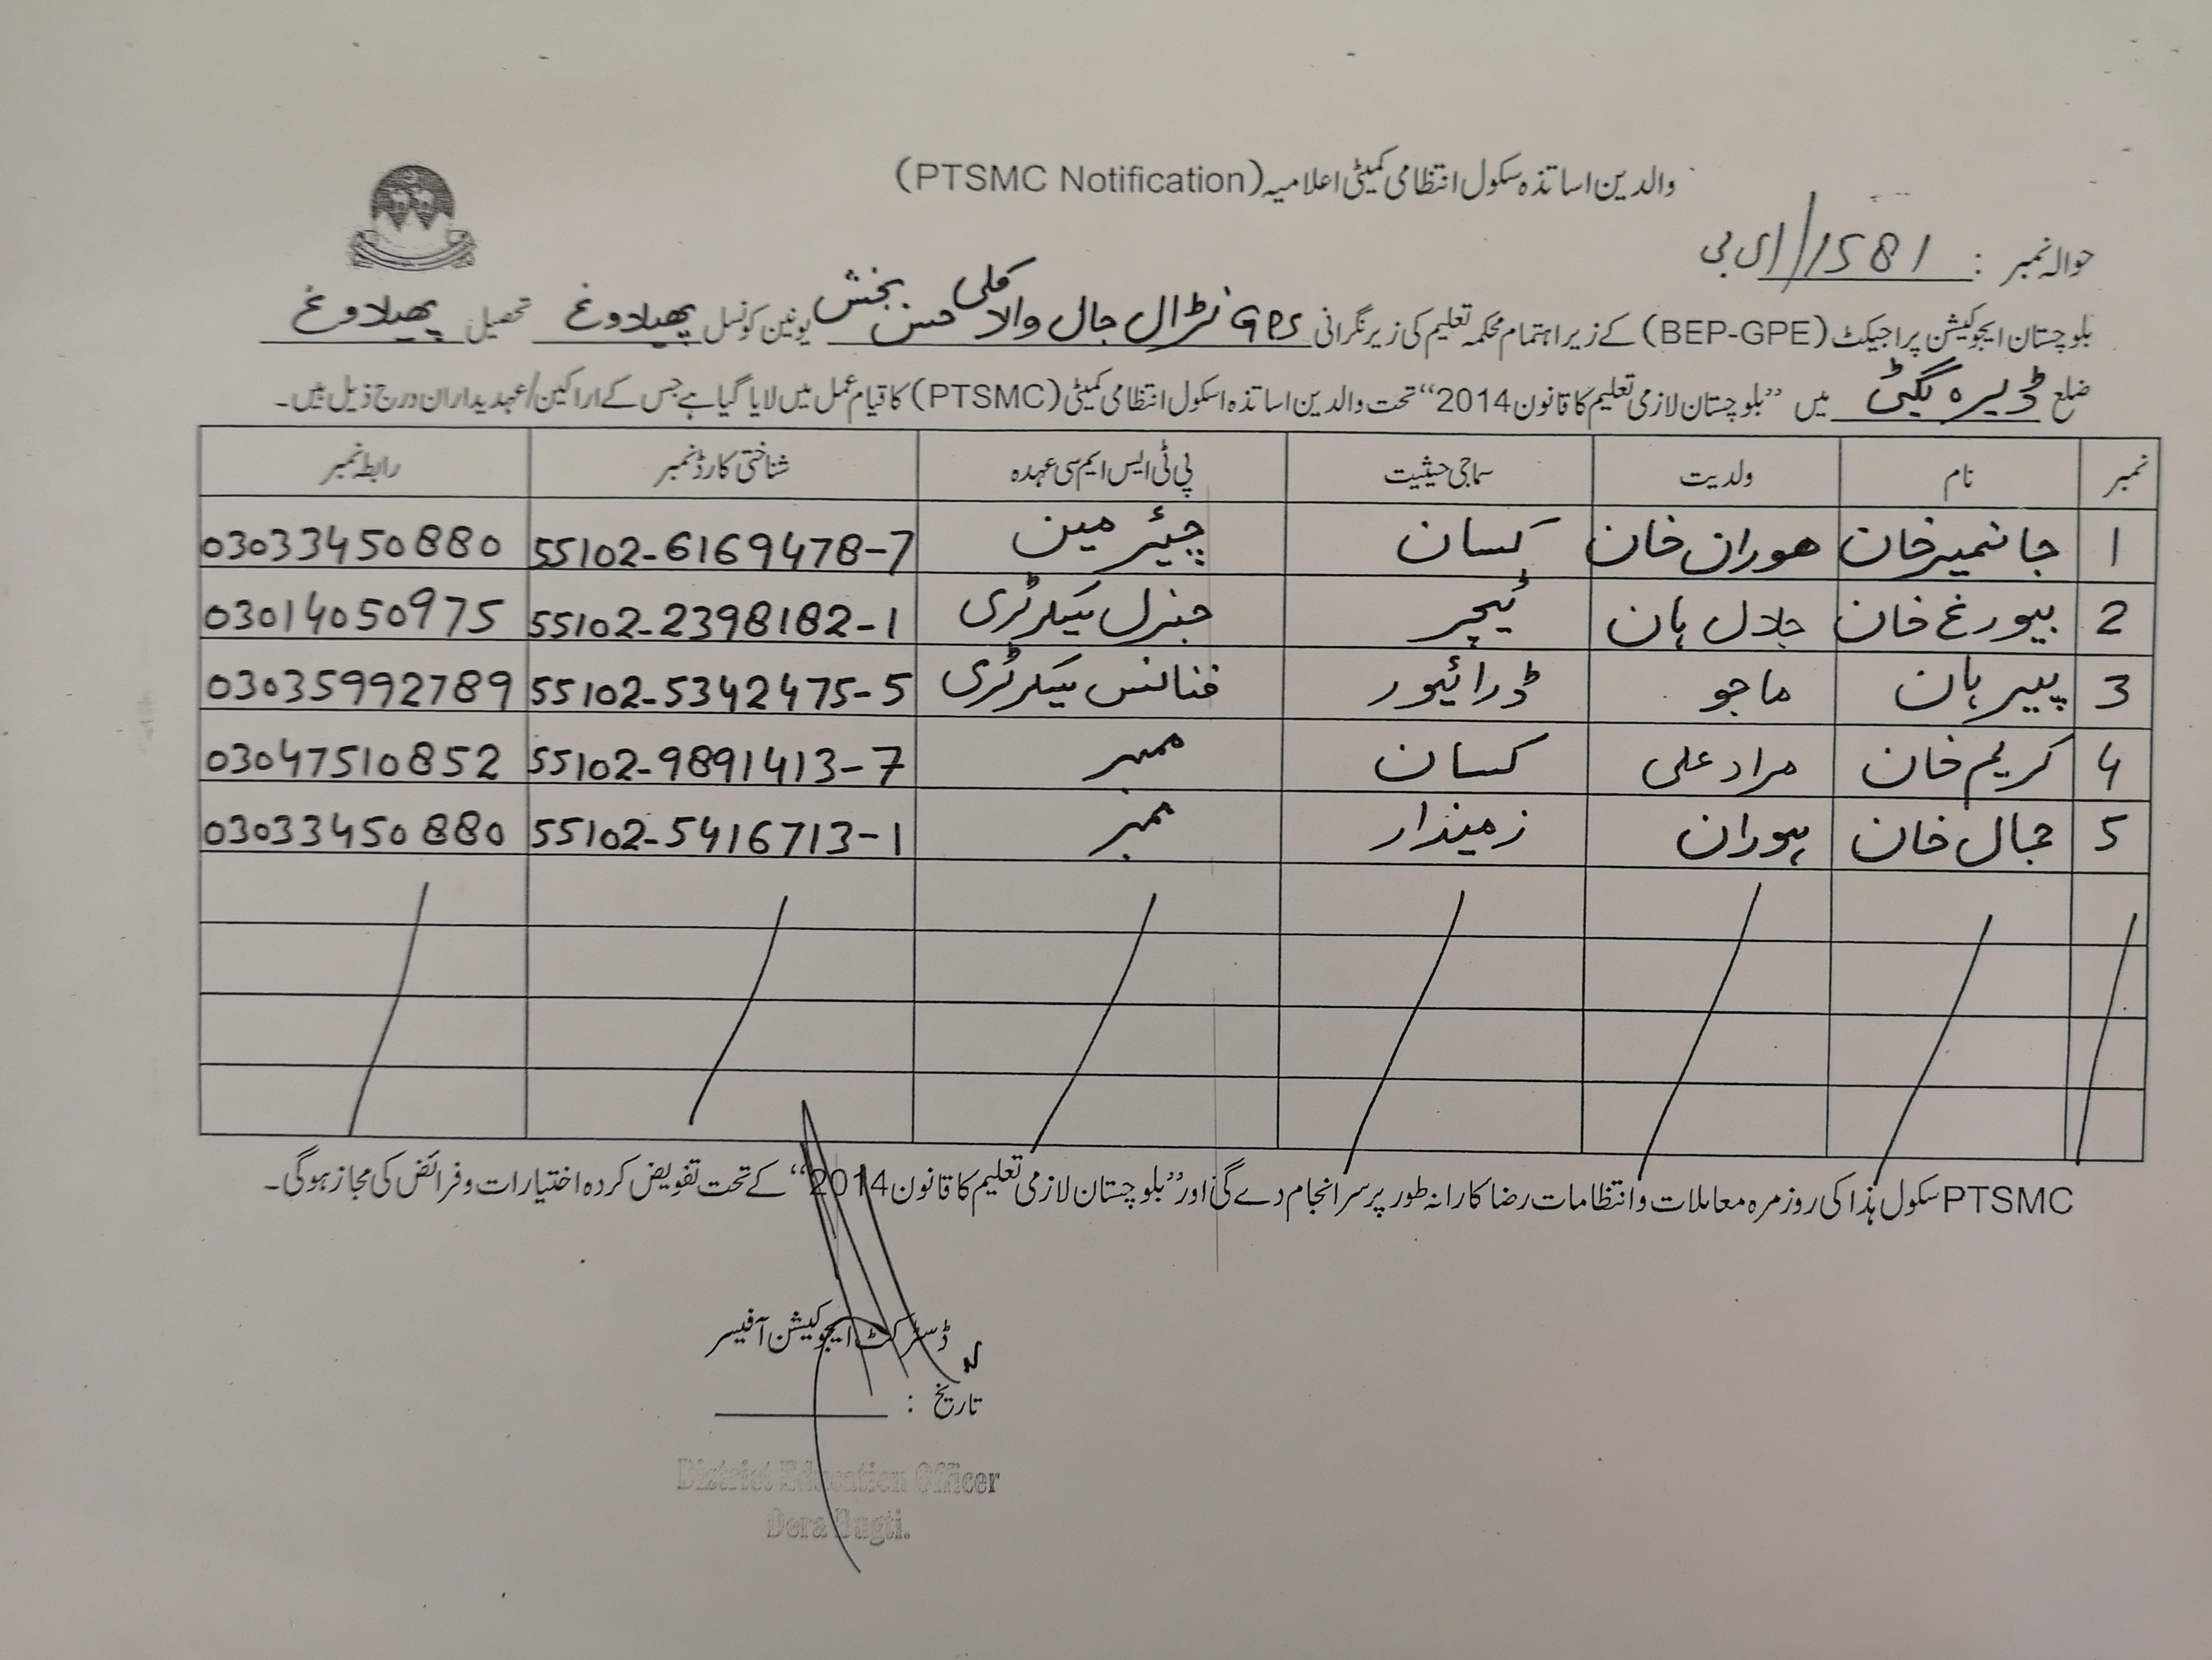 والدین اساتذہ سکول انتظامی کمیٹی اعلامیہ (PTSMC Notification)
حوالہ نمبر : 1581/ای بی
بلوچستان ایجوکیشن پراجیکٹ (BEP-GPE) کے زیر اہتمام محکمہ تعلیم کی زیر نگرانی GPS نڑال جال والا کلی حسن بخش یونین کونسل پھیلاوغ تحصیل پھیلاوغ
ضلع ڈیرہ بگٹی میں ”بلوچستان لازمی تعلیم کا قانون 2014“ تحت والدین اساتذہ اسکول انتظامی کمیٹی (PTSMC) کا قیام عمل میں لایا گیا ہے جس کے اراکین/عہدیداران درج ذیل ہیں۔
نمبر نام ولدیت سماجی حیثیت پی ٹی ایس ایم سی عہدہ شناختی کارڈ نمبر رابطہ نمبر
1 جانمیر خان ھوران خان کسان چیئر مین 55102-6169478-7 03033450880
2 بیورغ خان جلال ہان ٹیچر جنرل سیکرٹری 55102-2398182-1 03014050975
3 پیر ہان ماجو ڈرائیور فنانس سیکرٹری 55102-5342475-5 03035992789
4 کریم خان مراد علی کسان ممبر 55102-9891413-7 03047510852
5 جمال خان ہوران زمیندار ممبر 55102-5416713-1 03033450880
PTSMC سکول ہذا کی روزمرہ معاملات و انتظامات رضا کارانہ طور پر سرانجام دے گی اور ”بلوچستان لازمی تعلیم کا قانون 2014“ کے تحت تفویض کردہ اختیارات و فرائض کی مجاز ہوگی۔
ڈسٹرکٹ ایجوکیشن آفیسر
تاریخ :
District Education Officer
Dera Bugti.